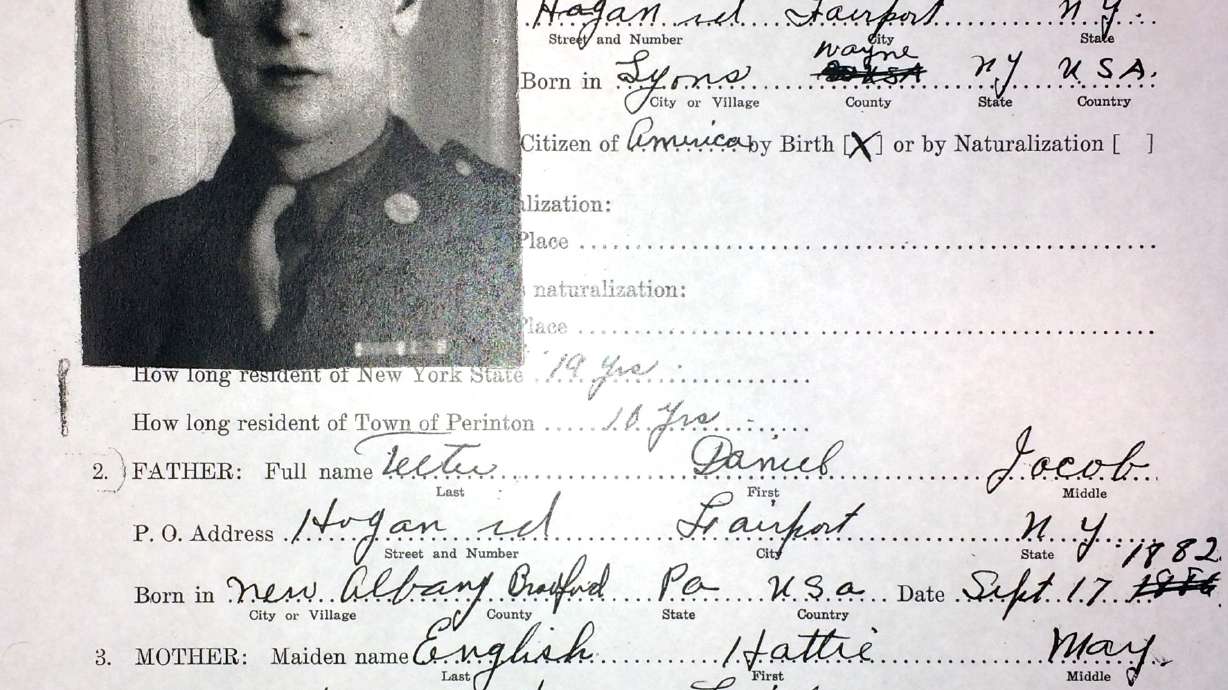 Hogan rd Fairport N Y.
Street and Number City State
Wayne
Born in Lyons USA NY USA.
City or Village County State Country
Citizen of America by Birth [X] or by Naturalization [ ]
lization:
Place
naturalization:
Place
How long resident of New York State 19 Yrs
How long resident of Town of Perinton 10 Yrs
2. FATHER: Full name Teeter Daniel Jacob
Last First Middle
P. O. Address Hogan rd Fairport N Y.
Street and Number City State
1882
Born in New Albany Bradford Pa USa Date Sept 17 1886
City or Village County State Country
3. MOTHER: Maiden name English Hattie May.
Last First Middle